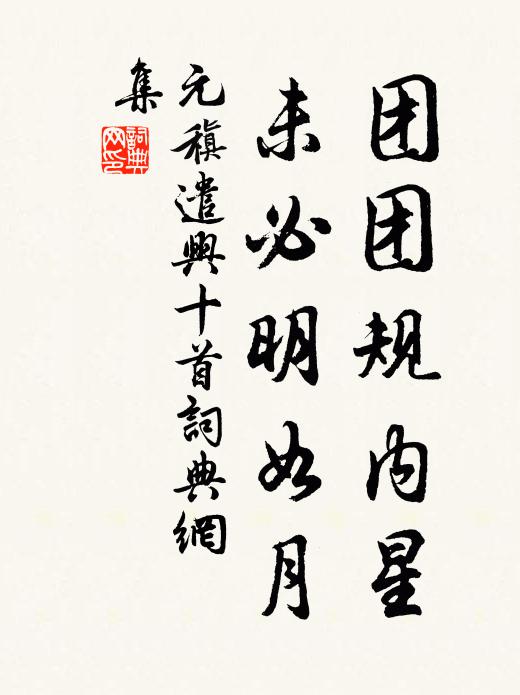 团团规内星
未必明如月
元稹遣興十首詞典網
集
詞典网印